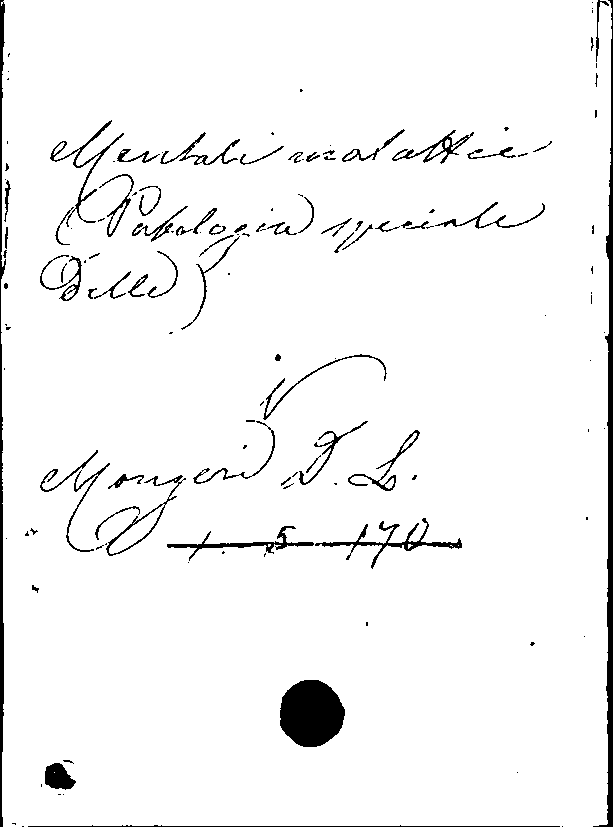 Mentali malattie
(Patologia speciale
Delle)
V
Mongeri D. L.
1. 5 170